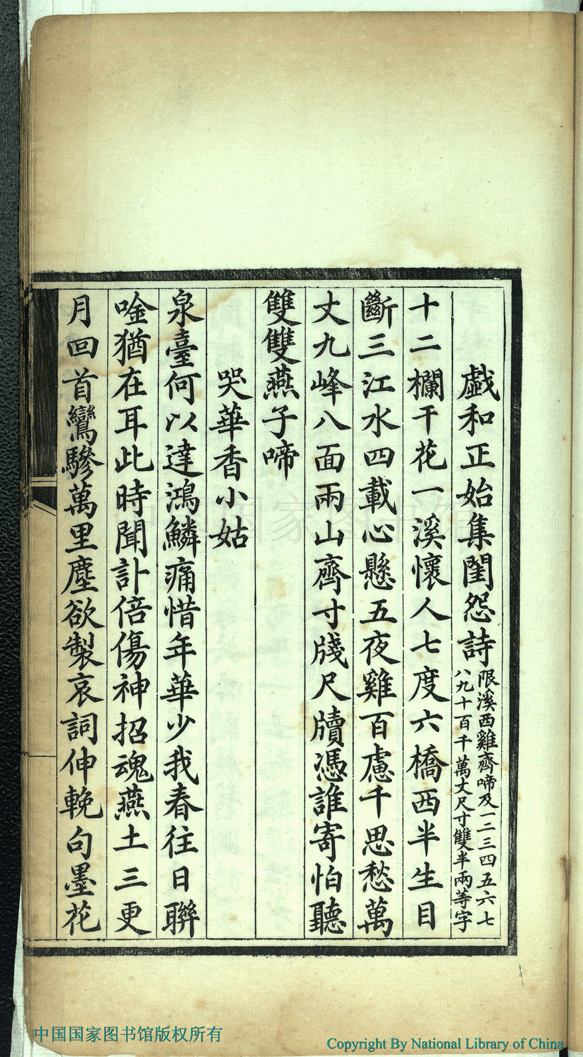 戯和正始集閨怨詩限溪西雞齊啼及一二三四五六七八九十百千萬丈尺寸雙半兩等字
十二欄干花一溪懷人七度六橋西半生目
斷三江水四載心懸五夜雞百慮千思愁萬
丈九峰八面兩山齊寸牋尺牘憑誰寄怕聽
雙雙燕子啼
哭華香小姑
泉臺何以達鴻鱗痛惜年華少我春往日聯
唫猶在耳此時聞訃倍傷神招魂燕土三更
月回首鸞驂萬里塵欲製哀詞伸輓句墨花
中国国家图书馆版权所有
Copyright By National Library of China